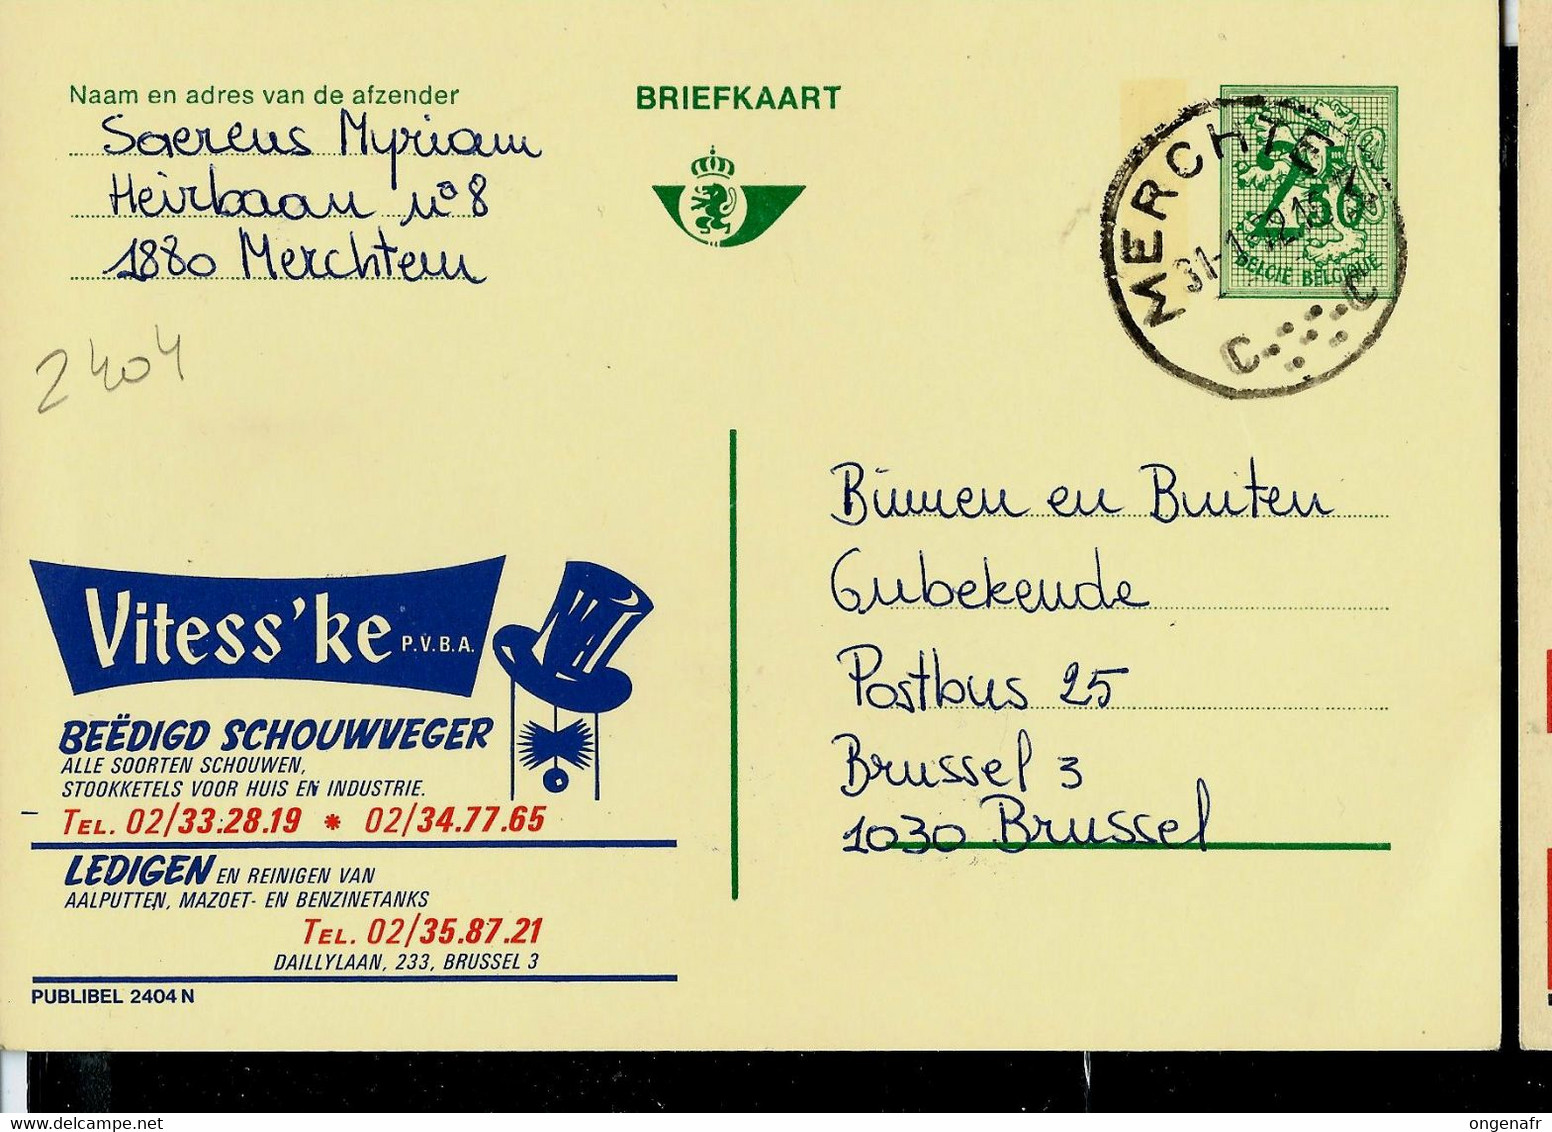 Naam en adres van de afzender
Saerens Myriam
Heirbaan n°8
1880 Merchtem
BRIEFKAART
MERCHTEM
31-1
C C
2,50
BELGIE BELGIQUE
2404
Binnen en Buiten
Gubekende
Postbus 25
Brussel 3
1030 Brussel
Vitess'ke P.V.B.A.
BEËDIGD SCHOUWVEGER
ALLE SOORTEN SCHOUWEN,
STOOKKETELS VOOR HUIS EN INDUSTRIE.
TEL. 02/33.28.19 * 02/34.77.65
LEDIGEN EN REINIGEN VAN
AALPUTTEN, MAZOET- EN BENZINETANKS
TEL. 02/35.87.21
DAILLYLAAN, 233, BRUSSEL 3
PUBLIBEL 2404 N
ongenafr